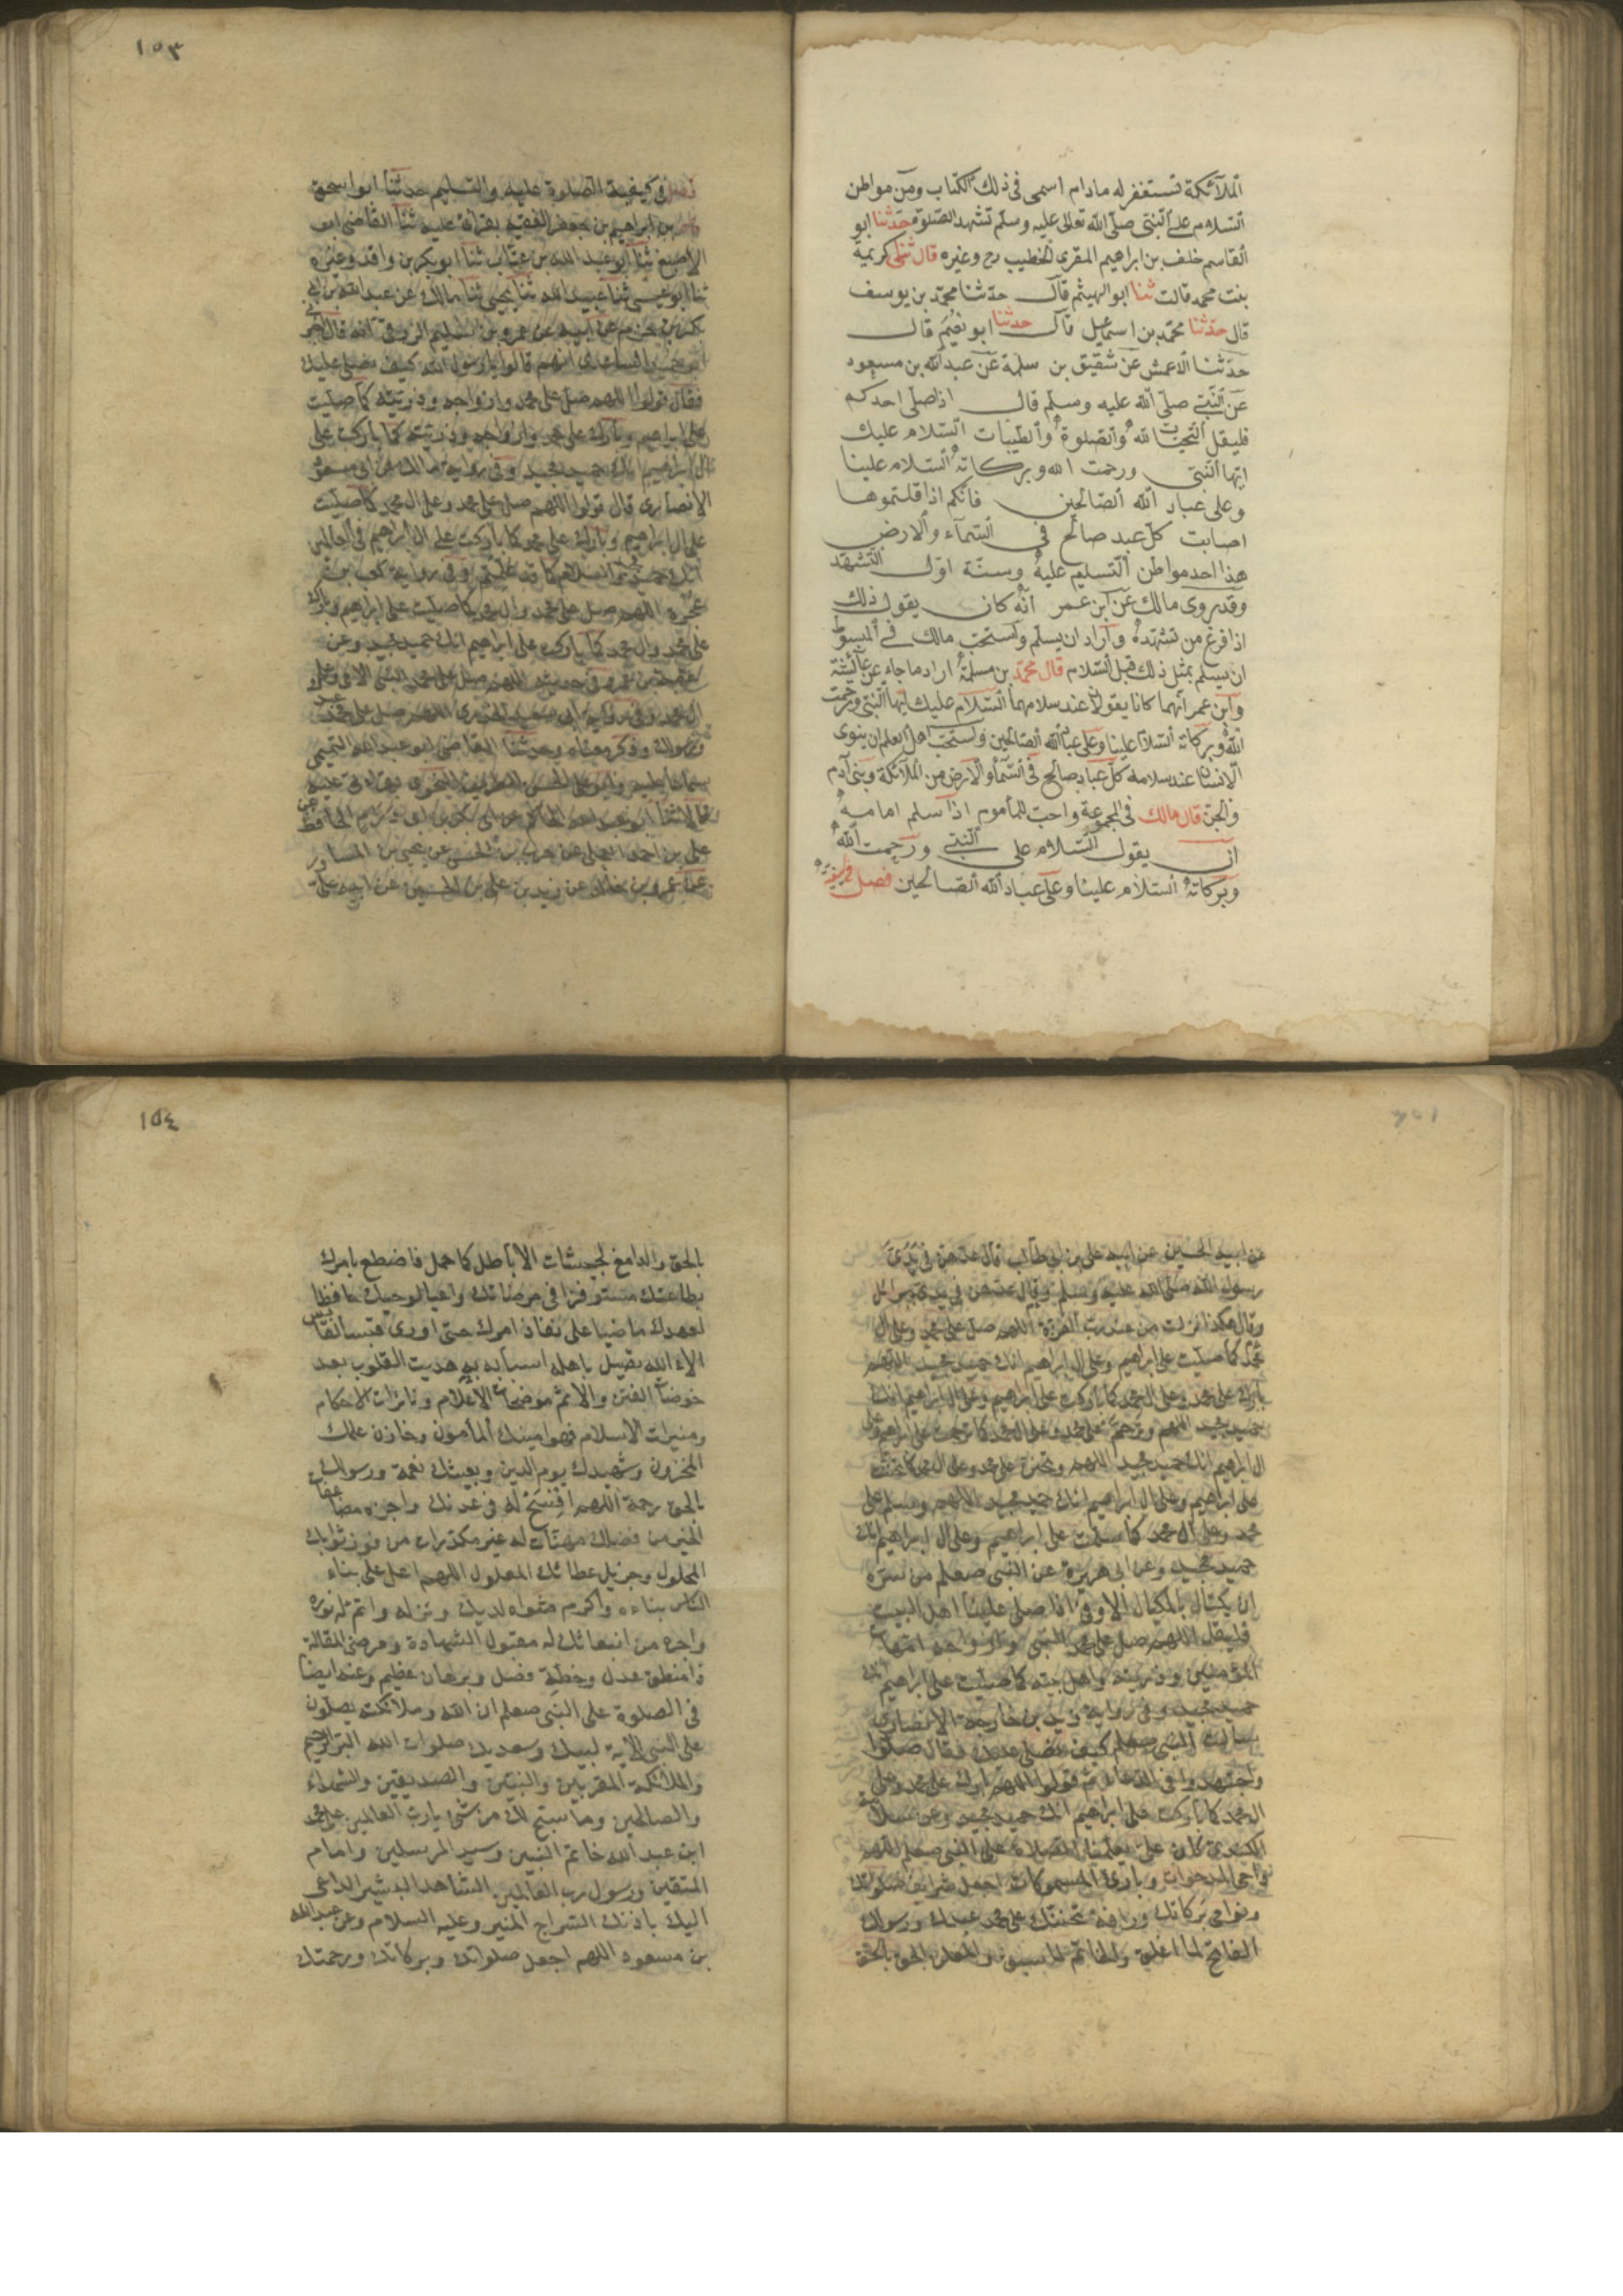 الملآئكة تستغفر له مادام اسمى فى ذلك الكتاب ومن مواطن
السلام على النبى صلى الله تعالى عليه وسلم تشهد الصلوة حدثنا ابو
القاسم خلف بن ابراهيم المقرى الخطيب رح وغيره قال ثنى كريمة
بنت محمد قالت ثنا ابو الهيثم قال حدثنا محمد بن يوسف
قال حدثنا محمد بن اسماعيل قال حدثنا ابو نعيم قال
حدثنا الاعمش عن شقيق بن سلمة عن عبد الله بن مسعود
عن النبى صلى الله عليه وسلم قال اذا صلى احدكم
فليقل التحيات لله والصلوة والطيبات السلام عليك
ايها النبى ورحمت الله وبركاته السلام علينا
وعلى عباد الله الصالحين فانكم اذا قلتموها
اصابت كل عبد صالح فى السمآء والارض
هذا احد مواطن التسليم عليه وسنة اول التشهد
وقد روى مالك عن ابن عمر انه كان يقول ذلك
اذا فرغ من تشهده واراد ان يسلم واستحب مالك فى المبسوط
ان يسلم بمثل ذلك قبل السلام قال محمد بن مسلمة اراد ما جاء عن عآئشة
وابن عمر انهما كانا يقولان عند سلامهما السلام عليك ايها النبى ورحمت
الله وبركاته السلام علينا وعلى عباد الله الصالحين واستحب اهل العلم ان ينوى
الانسان عند سلامه كل عبد صالح فى السمآء والارض من الملآئكة وبنى آدم
والجن قال مالك فى المجموعة واحب للمأموم اذا سلم امامه
ان يقول السلام على النبى ورحمت الله
وبركاته السلام علينا وعلى عباد الله الصالحين فصل
١٥٣
فى كيفية الصلوة عليه والتسليم حدثنا ابو اسحق
بن ابراهيم بن جعفر الفقيه بقراتى عليه ثنا القاضى ابو
الاصبغ ثنا ابو عبد الله بن عتاب ثنا ابو بكر بن واقد وغيره
ثنا ابو عيسى ثنا عبيد الله ثنا يحيى ثنا مالك عن عبد الله بن ابى
بكر بن حزم عن ابيه عن عمرو بن سليم الزرقى انه قال اخبر
ابو حميد الساعدى انهم قالوا يا رسول الله كيف نصلى عليك
فقال قولوا اللهم صل على محمد وازواجه وذريته كما صليت
على ابراهيم وبارك على محمد وازواجه وذريته كما باركت على
ال ابراهيم انك حميد مجيد وفى رواية مالك عن ابى مسعود
الانصارى قال قولوا اللهم صل على محمد وعلى ال محمد كما صليت
على ال ابراهيم وبارك على محمد كما باركت على ال ابراهيم فى العالمين
انك حميد مجيد والسلام كما قد علمتم وفى رواية كعب بن
عجرة اللهم صل على محمد وال محمد كما صليت على ابراهيم وبارك
على محمد وال محمد كما باركت على ابراهيم انك حميد مجيد وعن
عقبة بن عمرو فى حديثه اللهم صل على محمد النبى الامى وعلى
ال محمد وفى رواية ابى سعيد الخدرى اللهم صل على محمد عبدك
ورسولك وذكر معناه وحدثنا القاضى ابو عبد الله التميمى
على بن احمد العجلى عن حرب بن الحسن عن يحيى بن المساور
عن عمرو بن خالد عن زيد بن على بن الحسين عن ابيه على
عن ابيه الحسين عن ابيه على بن ابى طالب قال عدهن فى يدى
رسول الله صلى الله عليه وسلم وقال عدهن فى يدى جبرائل
وقال هكذا نزلت من عند رب العزة اللهم صل على محمد وعلى ال
محمد كما صليت على ابراهيم وعلى ال ابراهيم انك حميد مجيد اللهم
بارك على محمد وعلى ال محمد كما باركت على ابراهيم وعلى ال ابراهيم انك
حميد مجيد اللهم وترحم على محمد وعلى ال محمد كما ترحمت على ابراهيم وعلى
ال ابراهيم انك حميد مجيد اللهم وتحنن على محمد وعلى ال محمد كما تحننت
على ابراهيم وعلى ال ابراهيم انك حميد مجيد اللهم وسلم على
محمد وعلى ال محمد كما سلمت على ابراهيم وعلى ال ابراهيم انك
حميد مجيد وعن ابى هريرة عن النبى صعلم من سره
ان يكتال بالمكيال الاوفى اذا صلى علينا اهل البيت
فليقل اللهم صل على محمد النبى وازواجه امهات
المؤمنين وذريته واهل بيته كما صليت على ابراهيم انك
حميد مجيد وفى رواية زيد بن خارجة الانصارى
سألت النبى صعلم كيف نصلى عليك فقال صلوا
واجتهدوا فى الدعاء ثم قولوا اللهم بارك على محمد وعلى
ال محمد كما باركت على ابراهيم انك حميد مجيد وعن سلامة
الكندى كان على يعلمنا الصلاة على النبى صعلم اللهم
داحى المدحوات وبارئ المسموكات اجعل شرايف صلواتك
ونوامى بركاتك ورافة تحننك على محمد عبدك ورسولك
الفاتح لما اغلق والخاتم لما سبق والمعلن الحق بالحق
١٥٤
بالحق والدامغ لجيشات الاباطل كما حمل فاضطع بامرك
بطاعتك مستوفزا فى مرضاتك واعيا لوحيك حافظا
لعهدك ماضيا على نفاذ امرك حتى اورى قبسا لقابس
الاء الله يصل باهله اسبابه به هديت القلوب بعد
خوضات الفتن والاثم موضحات الاعلام ونائرات الاحكام
ومنيرات الاسلام فهو امينك المأمون وخازن علمك
المخزون وشهيدك يوم الدين وبعيثك نعمة ورسولك
بالحق رحمة اللهم افسح له فى عدنك واجزه مضاعفات
الخير من فضلك مهنآت له غير مكدرات من فوز ثوابك
المحلول وجزيل عطائك المعلول اللهم اعل على بناء
الناس بناءه واكرم مثواه لديك ونزله واتم له نوره
واجزه من انبعاثك له مقبول الشهادة ومرضى المقالة
ذا منطق عدل وخطة فصل وبرهان عظيم وعنه ايضا
فى الصلوة على النبى صعلم ان الله وملائكته يصلون
على النبى الاية لبيك وسعديك صلوات الله البر الرحيم
والملائكة المقربين والنبيين والصديقين والشهداء
والصالحين وما سبح لك من شئ يا رب العالمين على محمد
ابن عبد الله خاتم النبيين وسيد المرسلين وامام
المتقين ورسول رب العالمين الشاهد البشير الداعى
اليك باذنك السراج المنير وعليه السلام وعن عبد الله
بن مسعود اللهم اجعل صلواتك وبركاتك ورحمتك